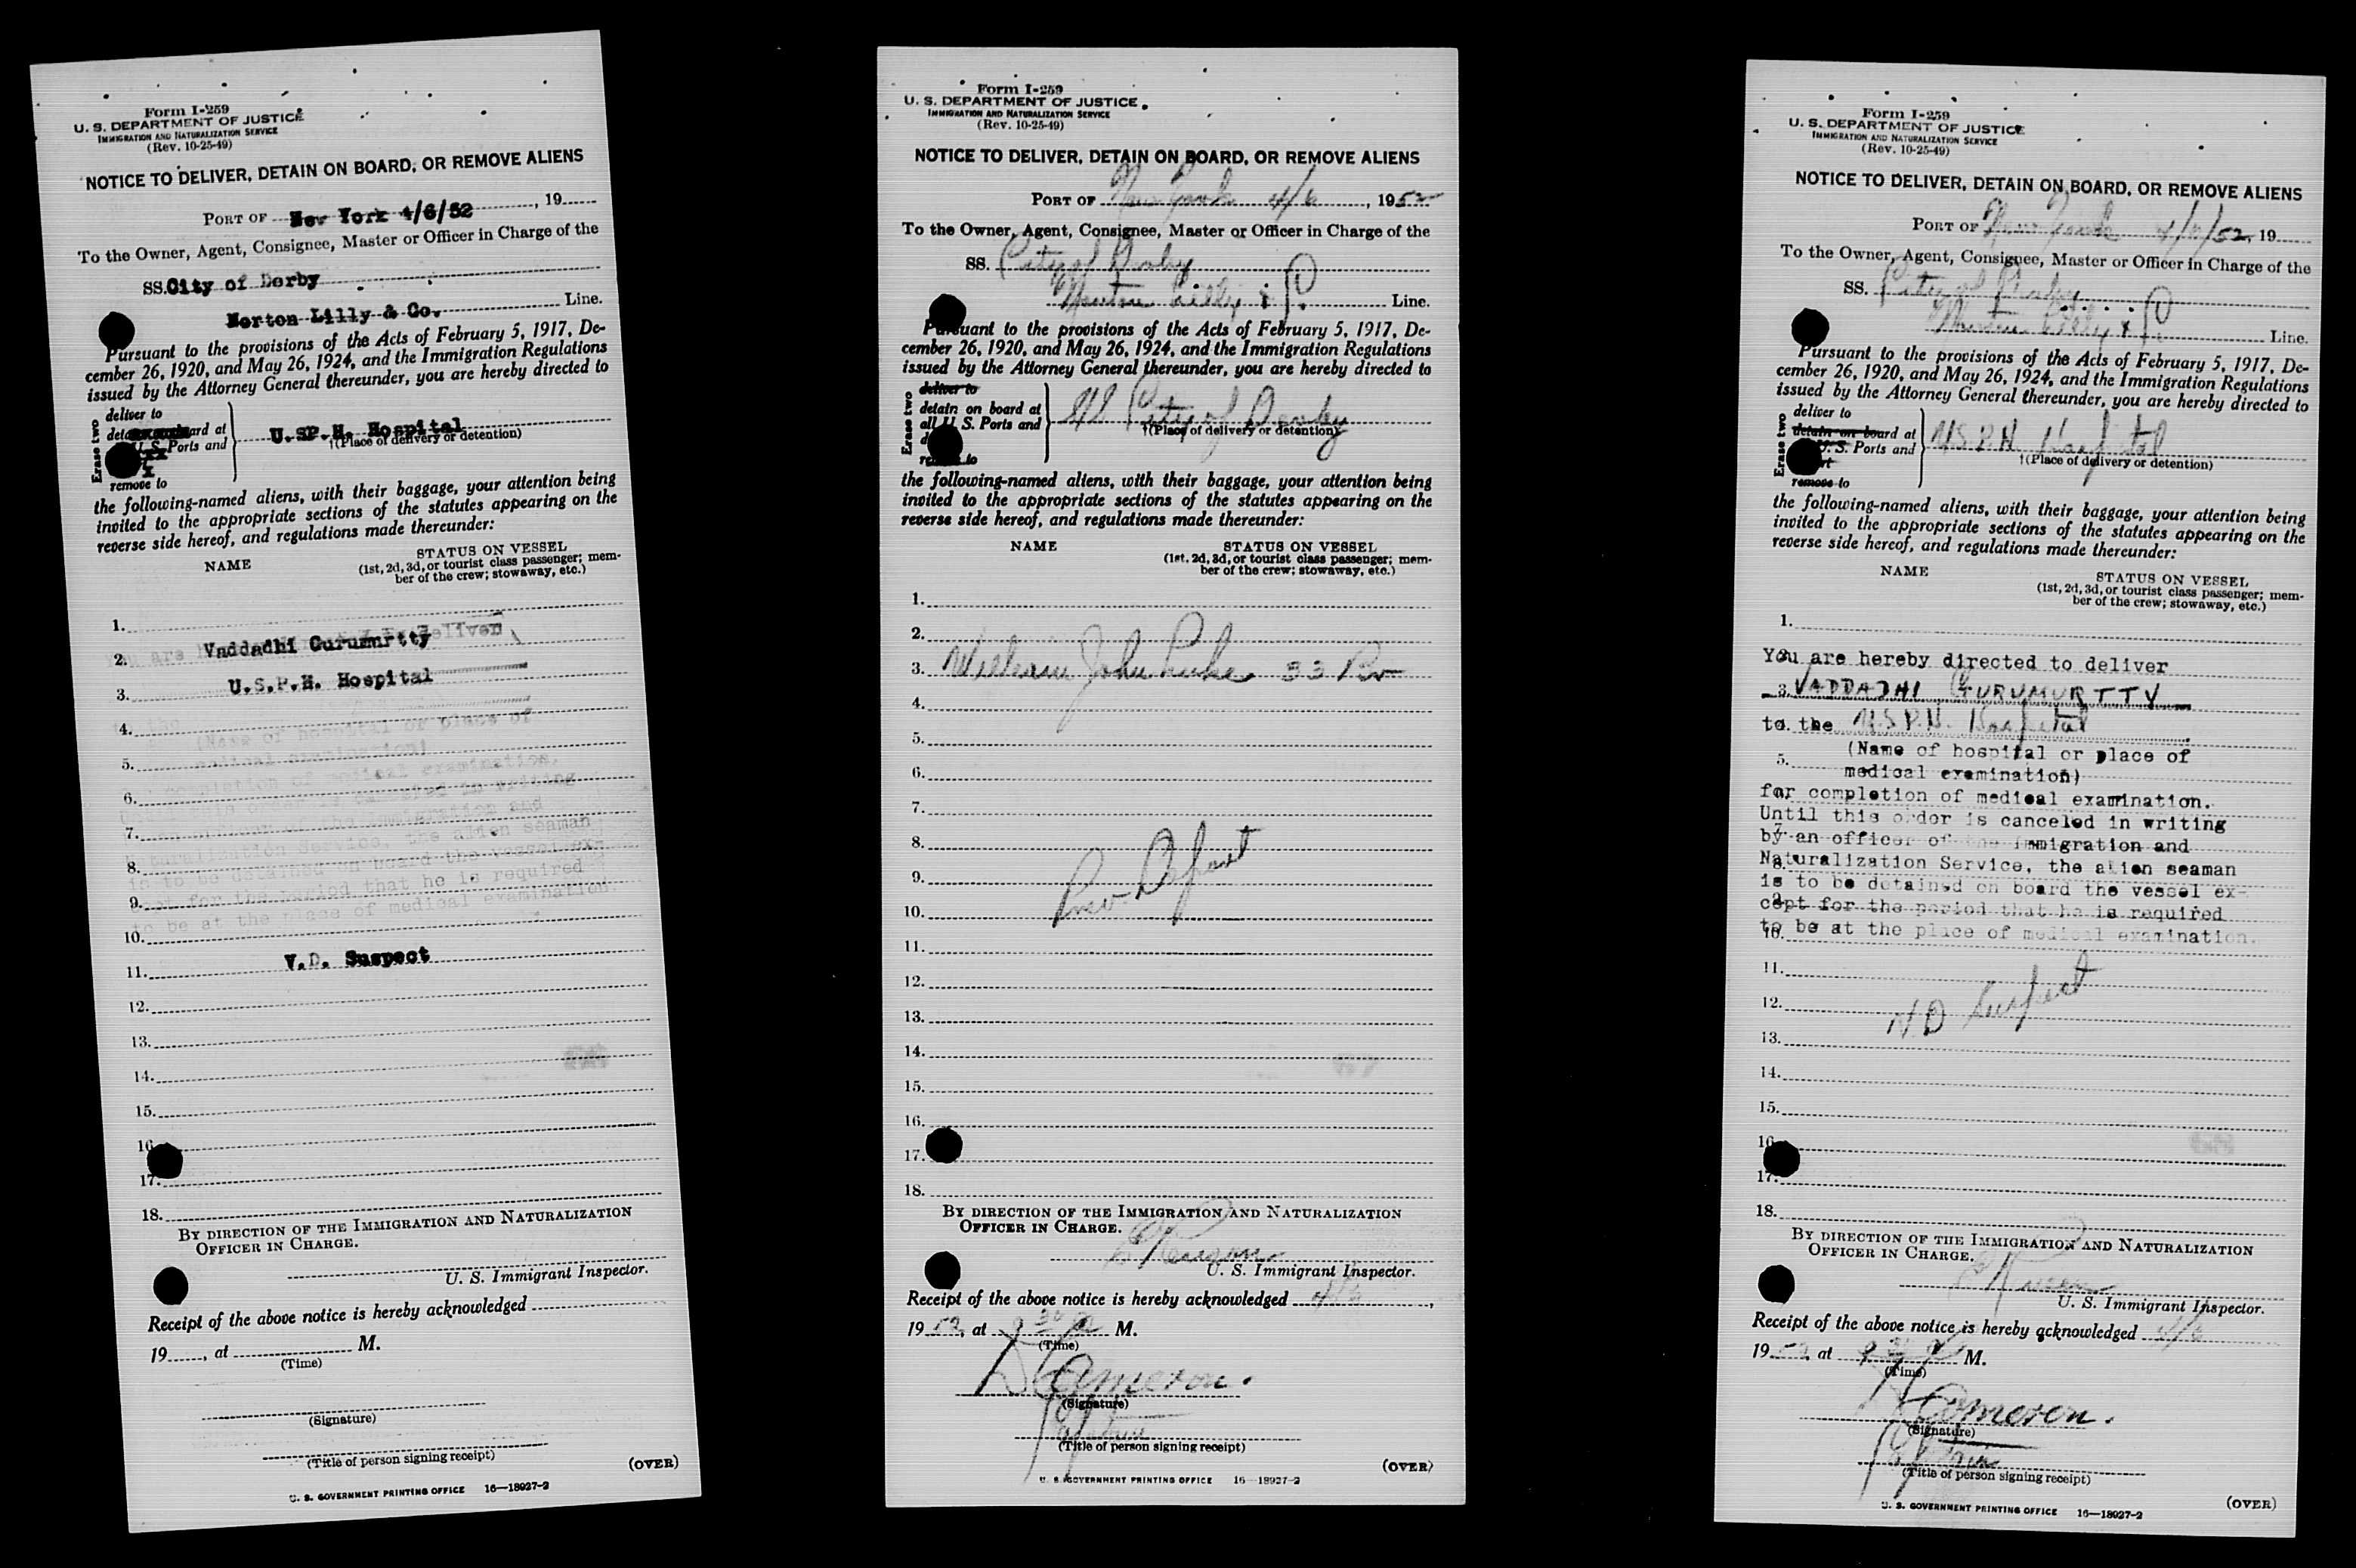 Form I-259
U. S. DEPARTMENT OF JUSTICE
IMMIGRATION AND NATURALIZATION SERVICE
(Rev. 10-25-49)
NOTICE TO DELIVER, DETAIN ON BOARD, OR REMOVE ALIENS
PORT OF New York 4/6/52, 19
To the Owner, Agent, Consignee, Master or Officer in Charge of the
SS. City of Derby
Norton Lilly & Co. Line.
Pursuant to the provisions of the Acts of February 5, 1917, De-
cember 26, 1920, and May 26, 1924, and the Immigration Regulations
issued by the Attorney General thereunder, you are hereby directed to
Erase two
deliver to
ard at
U. S. Ports and
remove to
U.SP.H. Hospital
†(Place of delivery or detention)
the following-named aliens, with their baggage, your attention being
invited to the appropriate sections of the statutes appearing on the
reverse side hereof, and regulations made thereunder:
NAME
STATUS ON VESSEL
(1st, 2d, 3d, or tourist class passenger; mem-
ber of the crew; stowaway, etc.)
1.
2. Vaddadhi Gurumurtty
3. U.S.P.H. Hospital
4.
5.
6.
7.
8.
9.
10.
11. V.D. Suspect
12.
13.
14.
15.
16.
17.
18.
BY DIRECTION OF THE IMMIGRATION AND NATURALIZATION
OFFICER IN CHARGE.
U. S. Immigrant Inspector.
Receipt of the above notice is hereby acknowledged
19, at M.
(Time)
(Signature)
(Title of person signing receipt)
(OVER)
U. S. GOVERNMENT PRINTING OFFICE 16—18927-2
Form I-259
U. S. DEPARTMENT OF JUSTICE
IMMIGRATION AND NATURALIZATION SERVICE
(Rev. 10-25-49)
NOTICE TO DELIVER, DETAIN ON BOARD, OR REMOVE ALIENS
PORT OF New York 4/6, 1952
To the Owner, Agent, Consignee, Master or Officer in Charge of the
SS. City of Derby
Norton Lilly & Line.
Pursuant to the provisions of the Acts of February 5, 1917, De-
cember 26, 1920, and May 26, 1924, and the Immigration Regulations
issued by the Attorney General thereunder, you are hereby directed to
Erase two
deliver to
detain on board at
all U. S. Ports and
to
SS City of Derby
†(Place of delivery or detention)
the following-named aliens, with their baggage, your attention being
invited to the appropriate sections of the statutes appearing on the
reverse side hereof, and regulations made thereunder:
NAME
STATUS ON VESSEL
(1st, 2d, 3d, or tourist class passenger; mem-
ber of the crew; stowaway, etc.)
1.
2.
3. William John 33
4.
5.
6.
7.
8.
9.
10.
11.
12.
13.
14.
15.
16.
17.
18.
BY DIRECTION OF THE IMMIGRATION AND NATURALIZATION
OFFICER IN CHARGE.
U. S. Immigrant Inspector.
Receipt of the above notice is hereby acknowledged 4/6,
1952, at M.
(Time)
Cameron.
(Signature)
(Title of person signing receipt)
(OVER)
U. S. GOVERNMENT PRINTING OFFICE 16—18927-2
Form I-259
U. S. DEPARTMENT OF JUSTICE
IMMIGRATION AND NATURALIZATION SERVICE
(Rev. 10-25-49)
NOTICE TO DELIVER, DETAIN ON BOARD, OR REMOVE ALIENS
PORT OF New York 4/6/52, 19
To the Owner, Agent, Consignee, Master or Officer in Charge of the
SS. City of Derby
Norton Lilly & Line.
Pursuant to the provisions of the Acts of February 5, 1917, De-
cember 26, 1920, and May 26, 1924, and the Immigration Regulations
issued by the Attorney General thereunder, you are hereby directed to
Erase two
deliver to
detain on board at
U. S. Ports and
remove to
U.S.P.H. Hospital
†(Place of delivery or detention)
the following-named aliens, with their baggage, your attention being
invited to the appropriate sections of the statutes appearing on the
reverse side hereof, and regulations made thereunder:
NAME
STATUS ON VESSEL
(1st, 2d, 3d, or tourist class passenger; mem-
ber of the crew; stowaway, etc.)
1.
You are hereby directed to deliver
3. VADDADHI GURUMURTTY
to the U.S.P.H. Hospital
5. (Name of hospital or place of
medical examination)
for completion of medical examination.
Until this order is canceled in writing
by an officer of the Immigration and
Naturalization Service, the alien seaman
is to be detained on board the vessel ex-
cept for the period that he is required
to be at the place of medical examination.
11.
12. V.D Suspect
13.
14.
15.
16.
17.
18.
BY DIRECTION OF THE IMMIGRATION AND NATURALIZATION
OFFICER IN CHARGE.
U. S. Immigrant Inspector.
Receipt of the above notice is hereby acknowledged 4/6
1952, at M.
(Time)
Cameron.
(Signature)
(Title of person signing receipt)
(OVER)
U. S. GOVERNMENT PRINTING OFFICE 16—18927-2